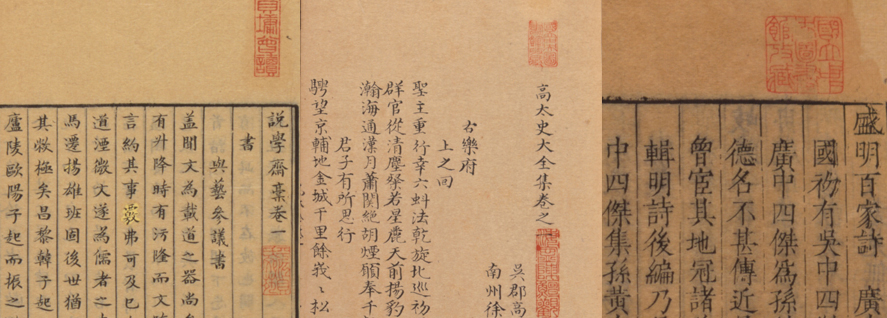 說學齋稾卷一
書
與蓺參議書
盖聞文為載道之器尚
有升降時有污隆而文
言約其事覈弗可及巳
道湮微文遂為儒者之
馬遷揚雄班固後世猶
其烖極矣昌黎韓子起
廬陵歐陽子起而振之
高太史大全集卷之
吳郡高
南州徐
古樂府
上之回
聖主重行幸六虯法乾旋北巡初
群官從清塵擊若星麗天前揚豹
瀚海通漢月蕭関絶胡煙願奉千
君子有所思行
騁望京輔地金城千里餘峩〻松
盛明百家詩
廣
國初有吳中四
廣中四傑為孫
德名不甚傳近
曾宦其地冠諸
輯明詩後編乃
中四傑集孫黃